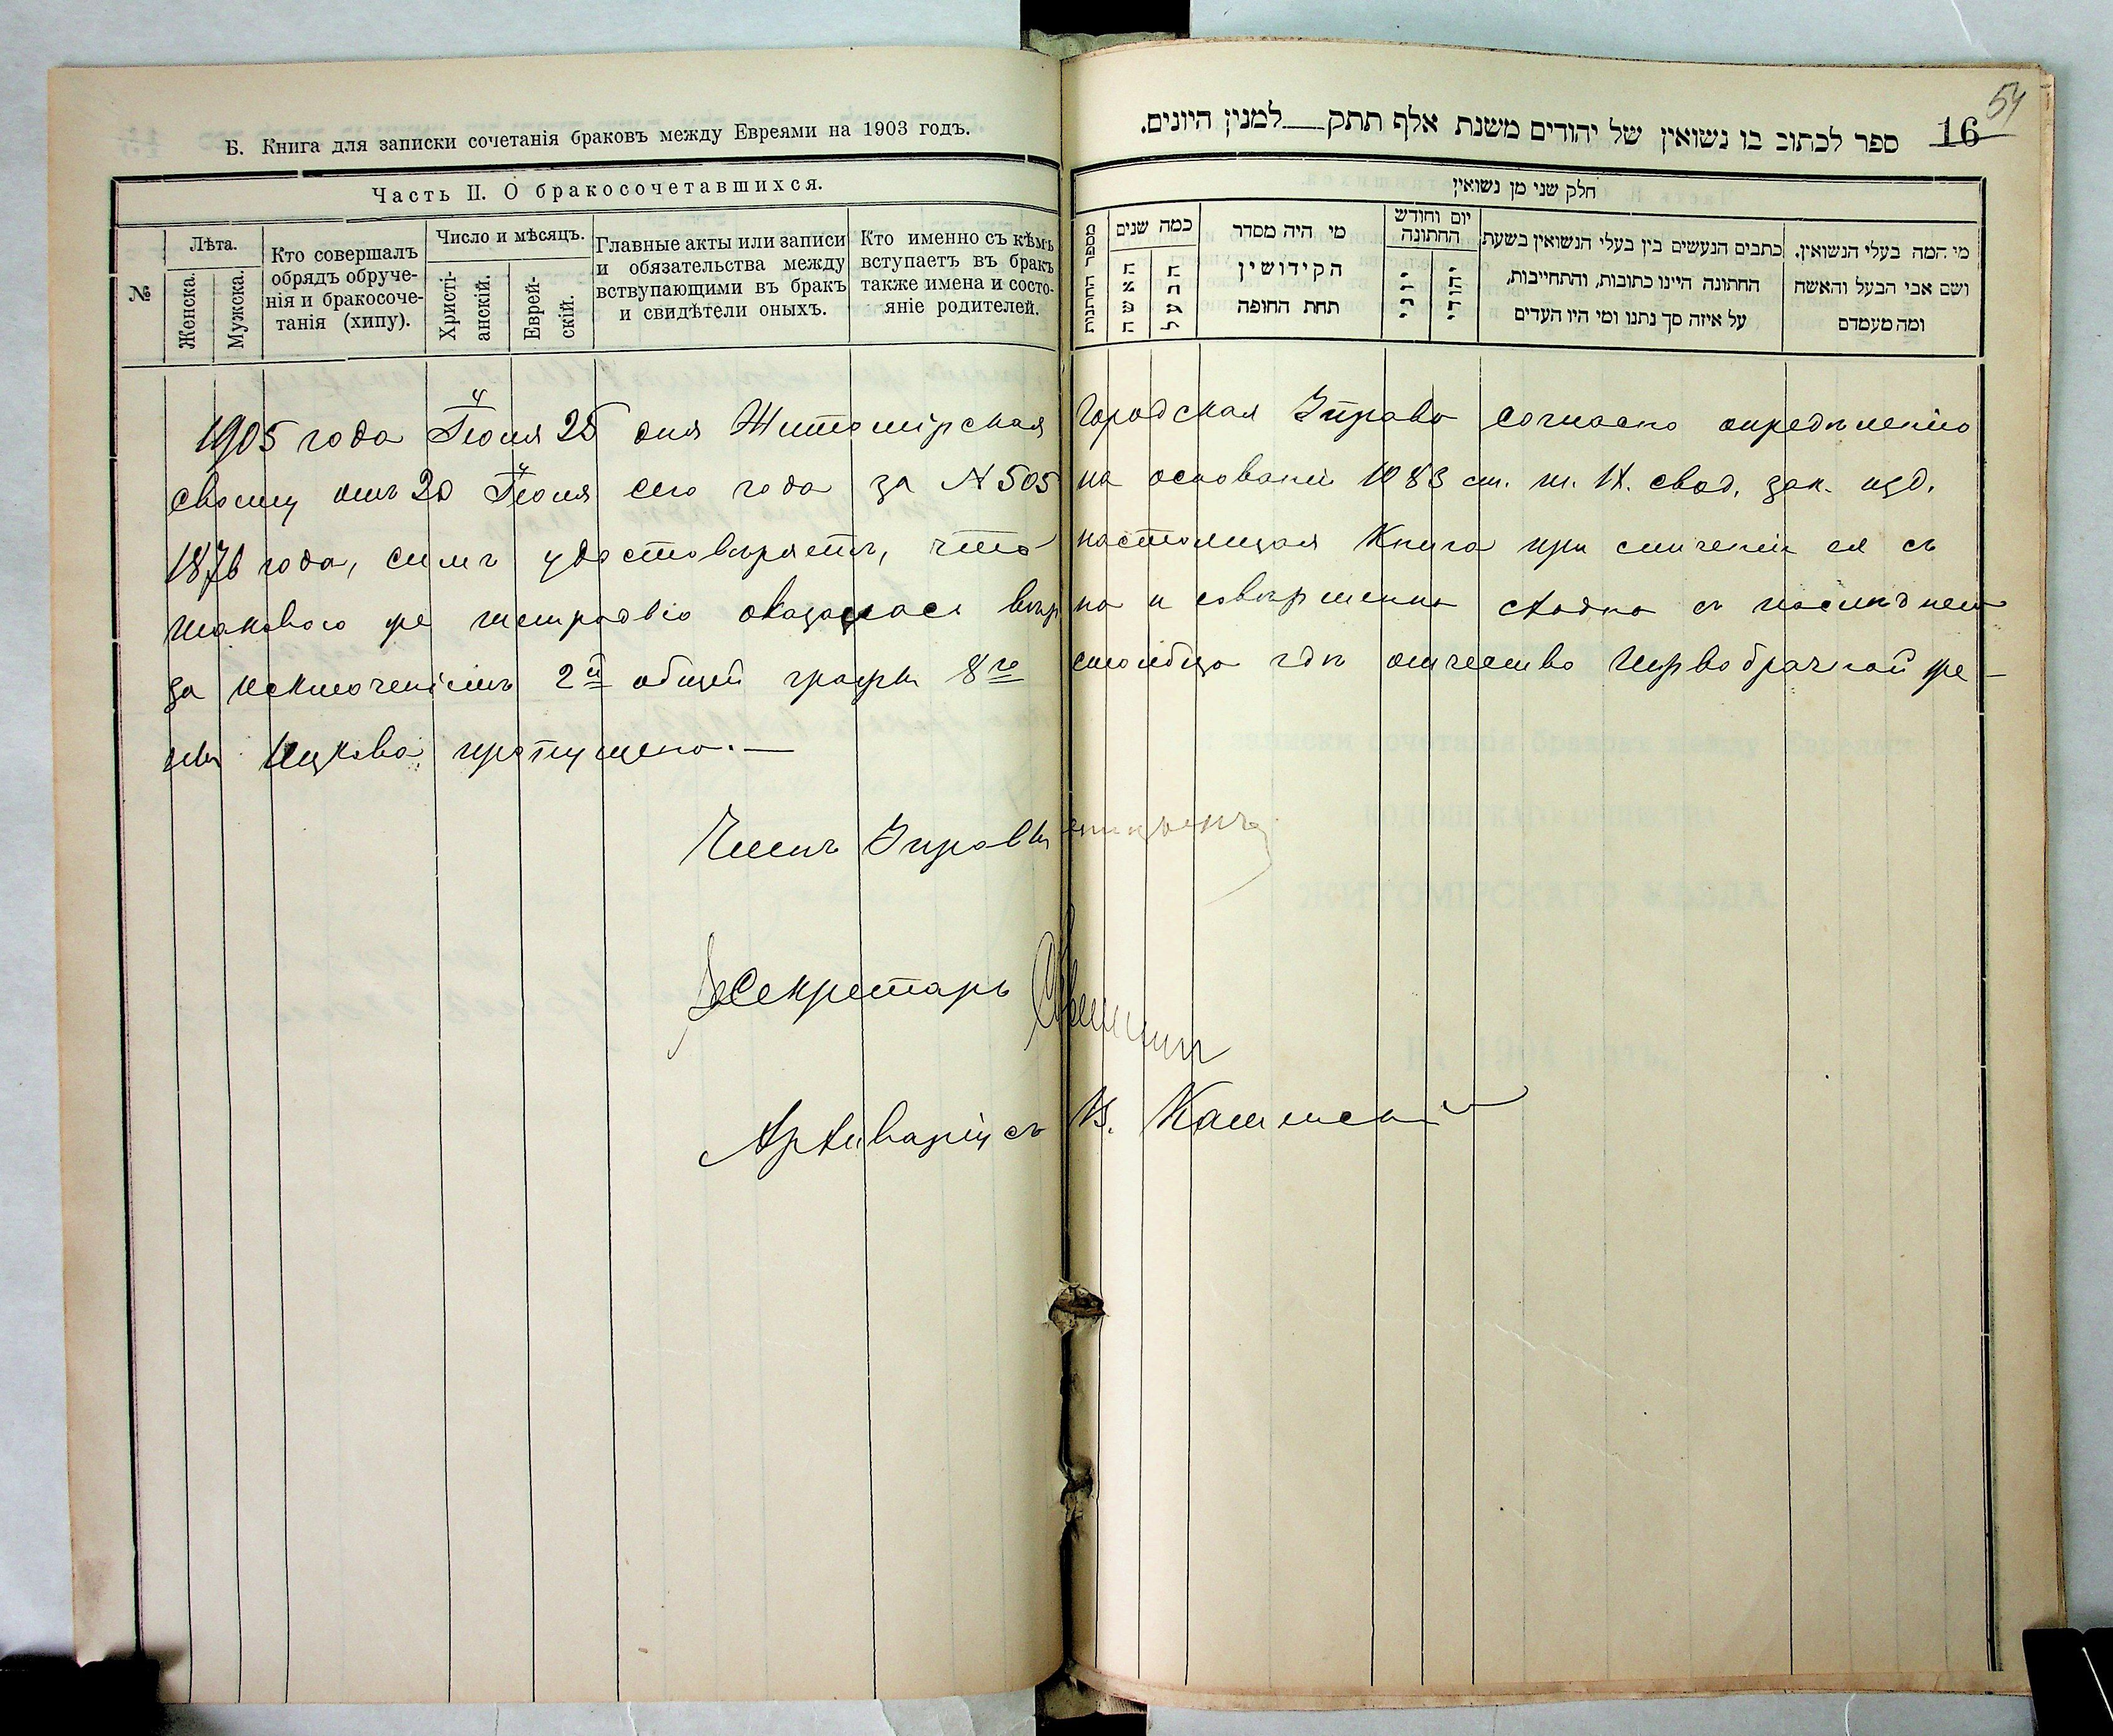 Б. Книга для записки сочетанія браковъ между Евреями на 1903 годъ.
Часть II. О бракосочетавшихся.
№
Лѣта.
Женска.
Мужска.
Кто совершалъ
обрядъ обруче-
нія и бракосоче-
танія (хипу).
Число и мѣсяцъ.
Христі-
анскій.
Еврей-
скій.
Главные акты или записи
и обязательства между
вствупающими въ бракъ
и свидѣтели оныхъ.
Кто именно съ кѣмъ
вступаетъ въ бракъ
также имена и состо-
яніе родителей.
54
16
ספר לכתוב בו נשואין של יהודים משנת אלף תתק למנין היונים.
חלק שני מן נשואין
מספר החתנות
כמה שנים
האשה
הבעל
מי היה מסדר
הקידושין
תחת החופה
יום וחודש
החתונה
יוני
יהודי
כתבים הנעשים בין בעלי הנשואין בשעת
החתונה היינו כתובות, והתחייבות,
על איזה סך נתנו ומי היו העדים
מי המה בעלי הנשואין.
ושם אבי הבעל והאשה
ומה מעמדם
1905 года Іюня 25 дня Житомірская Городская Управа согласно опредѣленію
своему отъ 20 Іюня сего года за N 505 на основаніи 1083 ст. т. IX. свод. зак. изд.
1876 года, симъ удостовѣряетъ, что настоящая Книга при сличеніи ея съ
таковою же тетрадью оказалась вѣрна и совершенно сходна съ послѣднею
за исключеніемъ 2й общей графы 8го столбца гдѣ отчество первобрачной же-
ны пропущено.—
Членъ Управы
Секретарь
Архиваріусъ